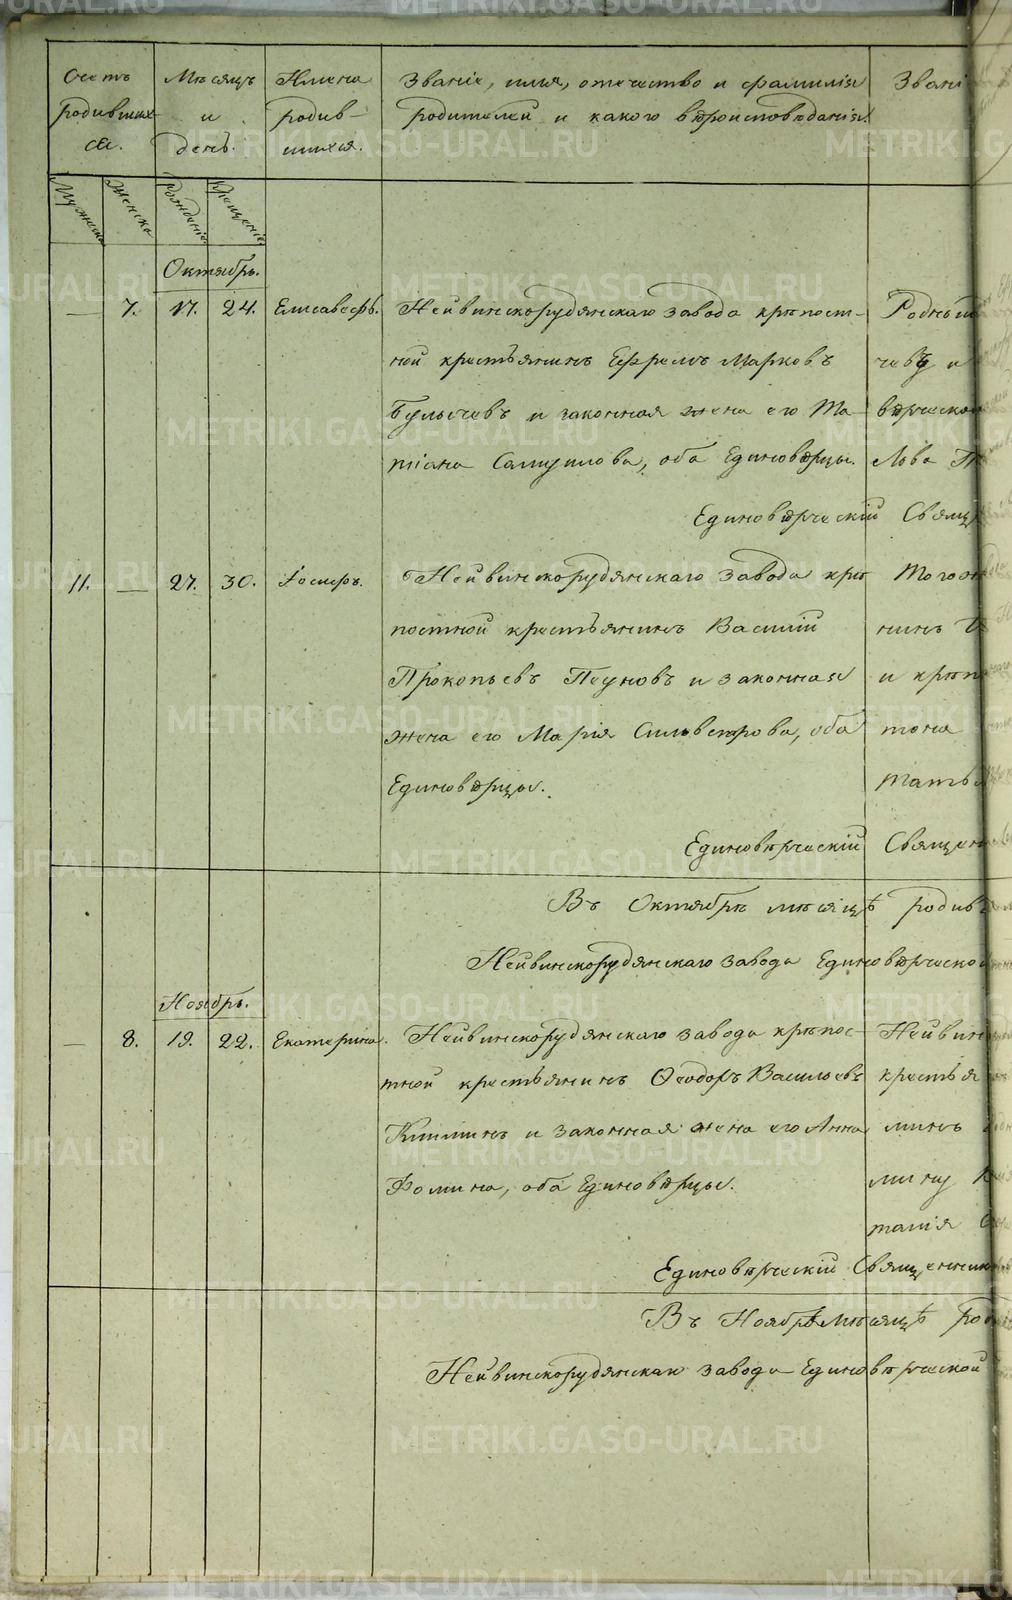 Счетъ родившихся.
Мѣсяцъ и день.
Имена родившихся.
Званіе, имя, отечество и фамилія
родителей и какого вѣроисповѣданія.
Звані
Мужска
Женска
Рожденіе
Крещеніе
Октябрь.
— 7. 17. 24. Елисавефь. Нейвинскорудянскаго завода крѣпост- Родный
ной крестьянинъ Ефремъ Марковъ
Булычевъ и законная жена его Та- вѣрческой
тіана Самуилова, оба Единовѣрцы. лова
Единовѣрческій Свящ
11. — 27. 30. Іосифъ. Нейвинскорудянскаго завода крѣ Тогоже
постной крестьянинъ Василій нинъ
Прокопьевъ Пеуновъ и законная и крѣп
жена его Марія Сильвестрова, оба тона
Единовѣрцы. Татья
Единовѣрческій Священ
Въ Октябрѣ мѣсяцѣ родив
Нейвинскорудянскаго завода Единовѣрческой
Ноябрь.
— 8. 19. 22. Екатерина. Нейвинскорудянскаго завода крѣпос- Нейвин
тной крестьянинъ Ѳеодоръ Васильевъ крестья
Килинъ и законная жена его Анна минъ
Фомина, оба Единовѣрцы. мину
танія
Единовѣрческій Священник
Въ Ноябрѣ мѣсяцѣ род
Нейвинскорудянскаго завода Единовѣрческой
METRIKI.GASO-URAL.RU